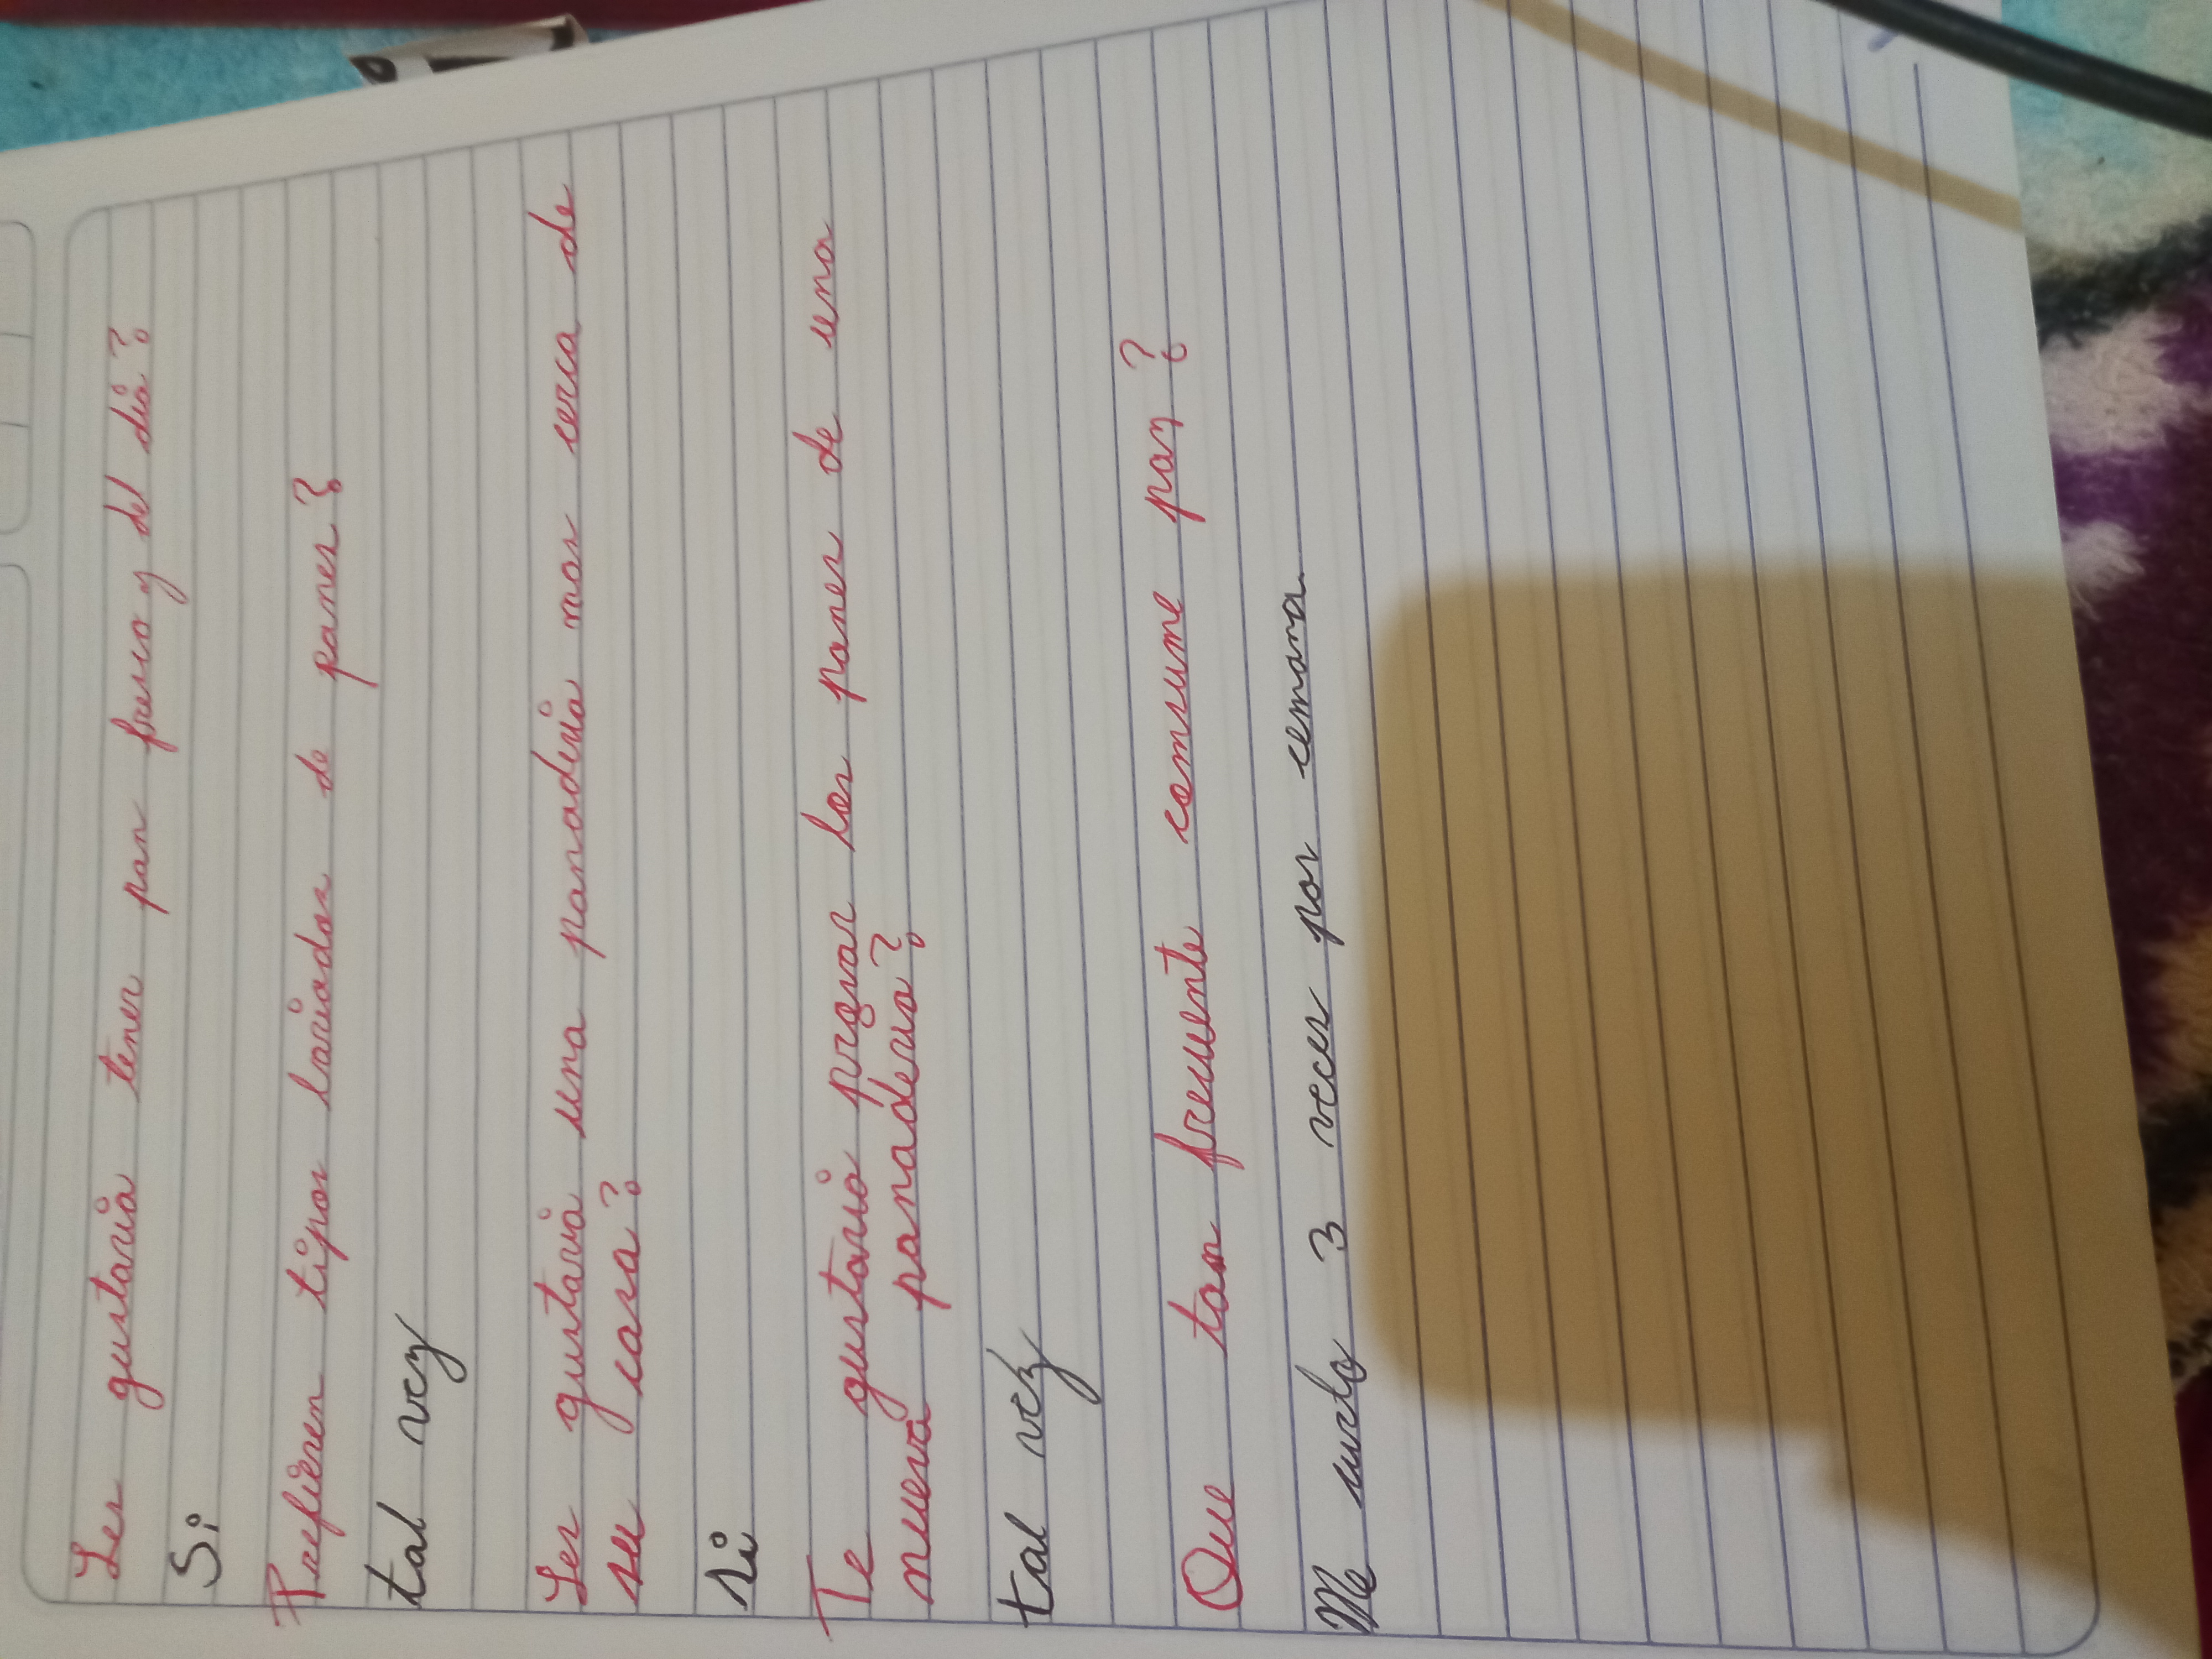 Les gustaria tener pan fresco y del dia?
Si
Prefieren tipos lariados de panes?
tal vez
Les gustaria una panaderia mas cerca de
su casa?
si
Te gustaria provar los panes de una
nueva panaderia?
tal vez
Que tan frecuente consume pan?
Me surto 3 veces por cemana